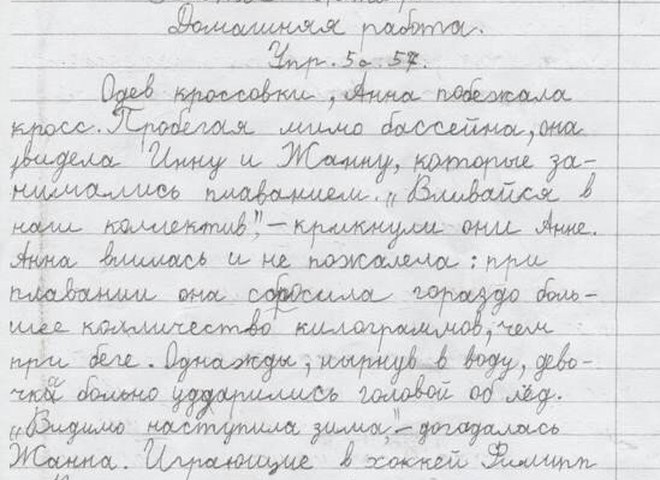 Домашняя работа.
Упр. 5 с. 57.
Одев кроссовки, Анна побежала
кросс. Пробегая мимо бассейна, она
увидела Инну и Жанну, которые за-
нимались плаванием. „Вливайся в
наш коллектив", – крикнули они Анне.
Анна влилась и не пожалела: при
плавании она сбросила гораздо боль-
шее количество килограммов, чем
при беге. Однажды, нырнув в воду, дево-
чка больно ударились головой об лёд.
„Видимо наступила зима", – догадалась
Жанна. Играющие в хоккей Филипп